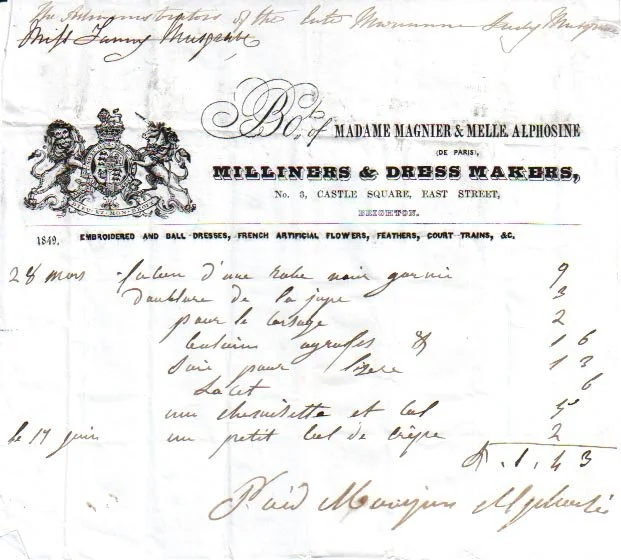 The Administrators of the late Marianne Judy Musgrave
Miss Fanny Musgrave
Bot. of MADAME MAGNIER & MELLE. ALPHOSINE
(DE PARIS),
MILLINERS & DRESS MAKERS,
No. 3, CASTLE SQUARE, EAST STREET,
BRIGHTON.
1849. EMBROIDERED AND BALL-DRESSES, FRENCH ARTIFICIAL FLOWERS, FEATHERS, COURT-TRAINS, &C.
28 mars facon d'une robe noir garnie 9
doublure de la jupe 3
pour le corsage 2
agrafes & 1 6
soie pour 1 3
Lacet 6
une chemisette et col 5
le 17 juin un petit col de crêpe 2
£ . 1 . 4 3
Paid